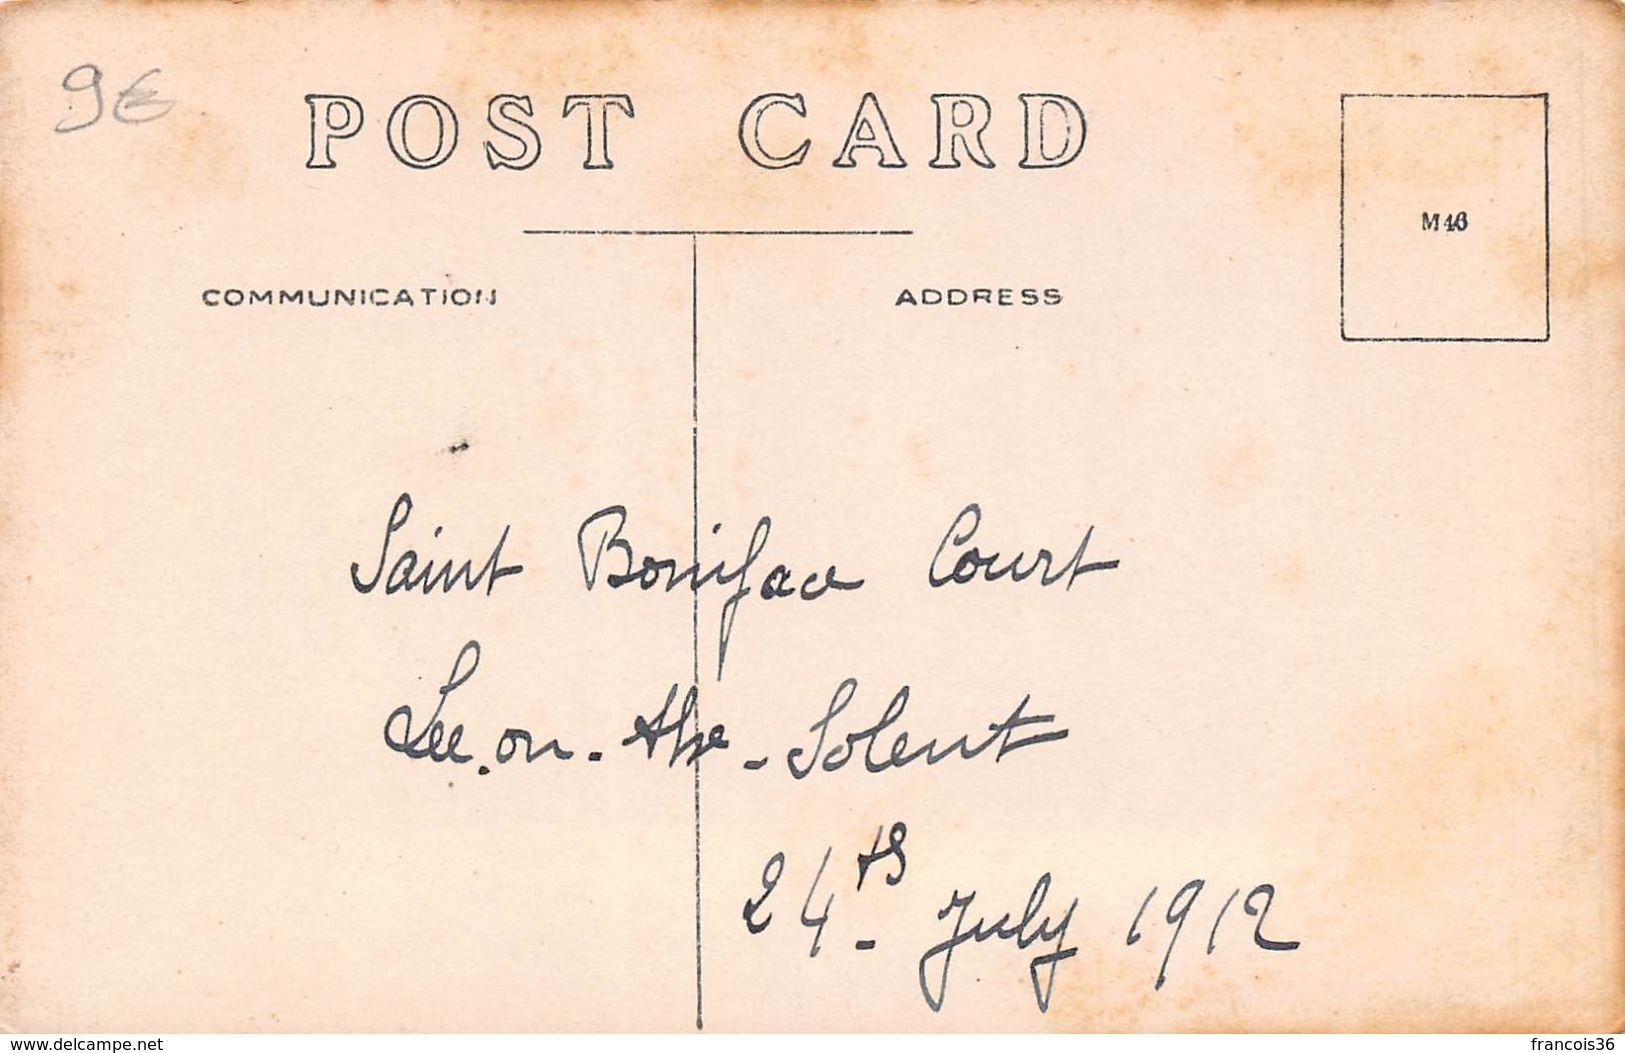 9€
POST CARD
M46
COMMUNICATION
ADDRESS
Saint Boniface Court
Lee-on-the-Solent
24th July 1912
www.delcampe.net
francois36